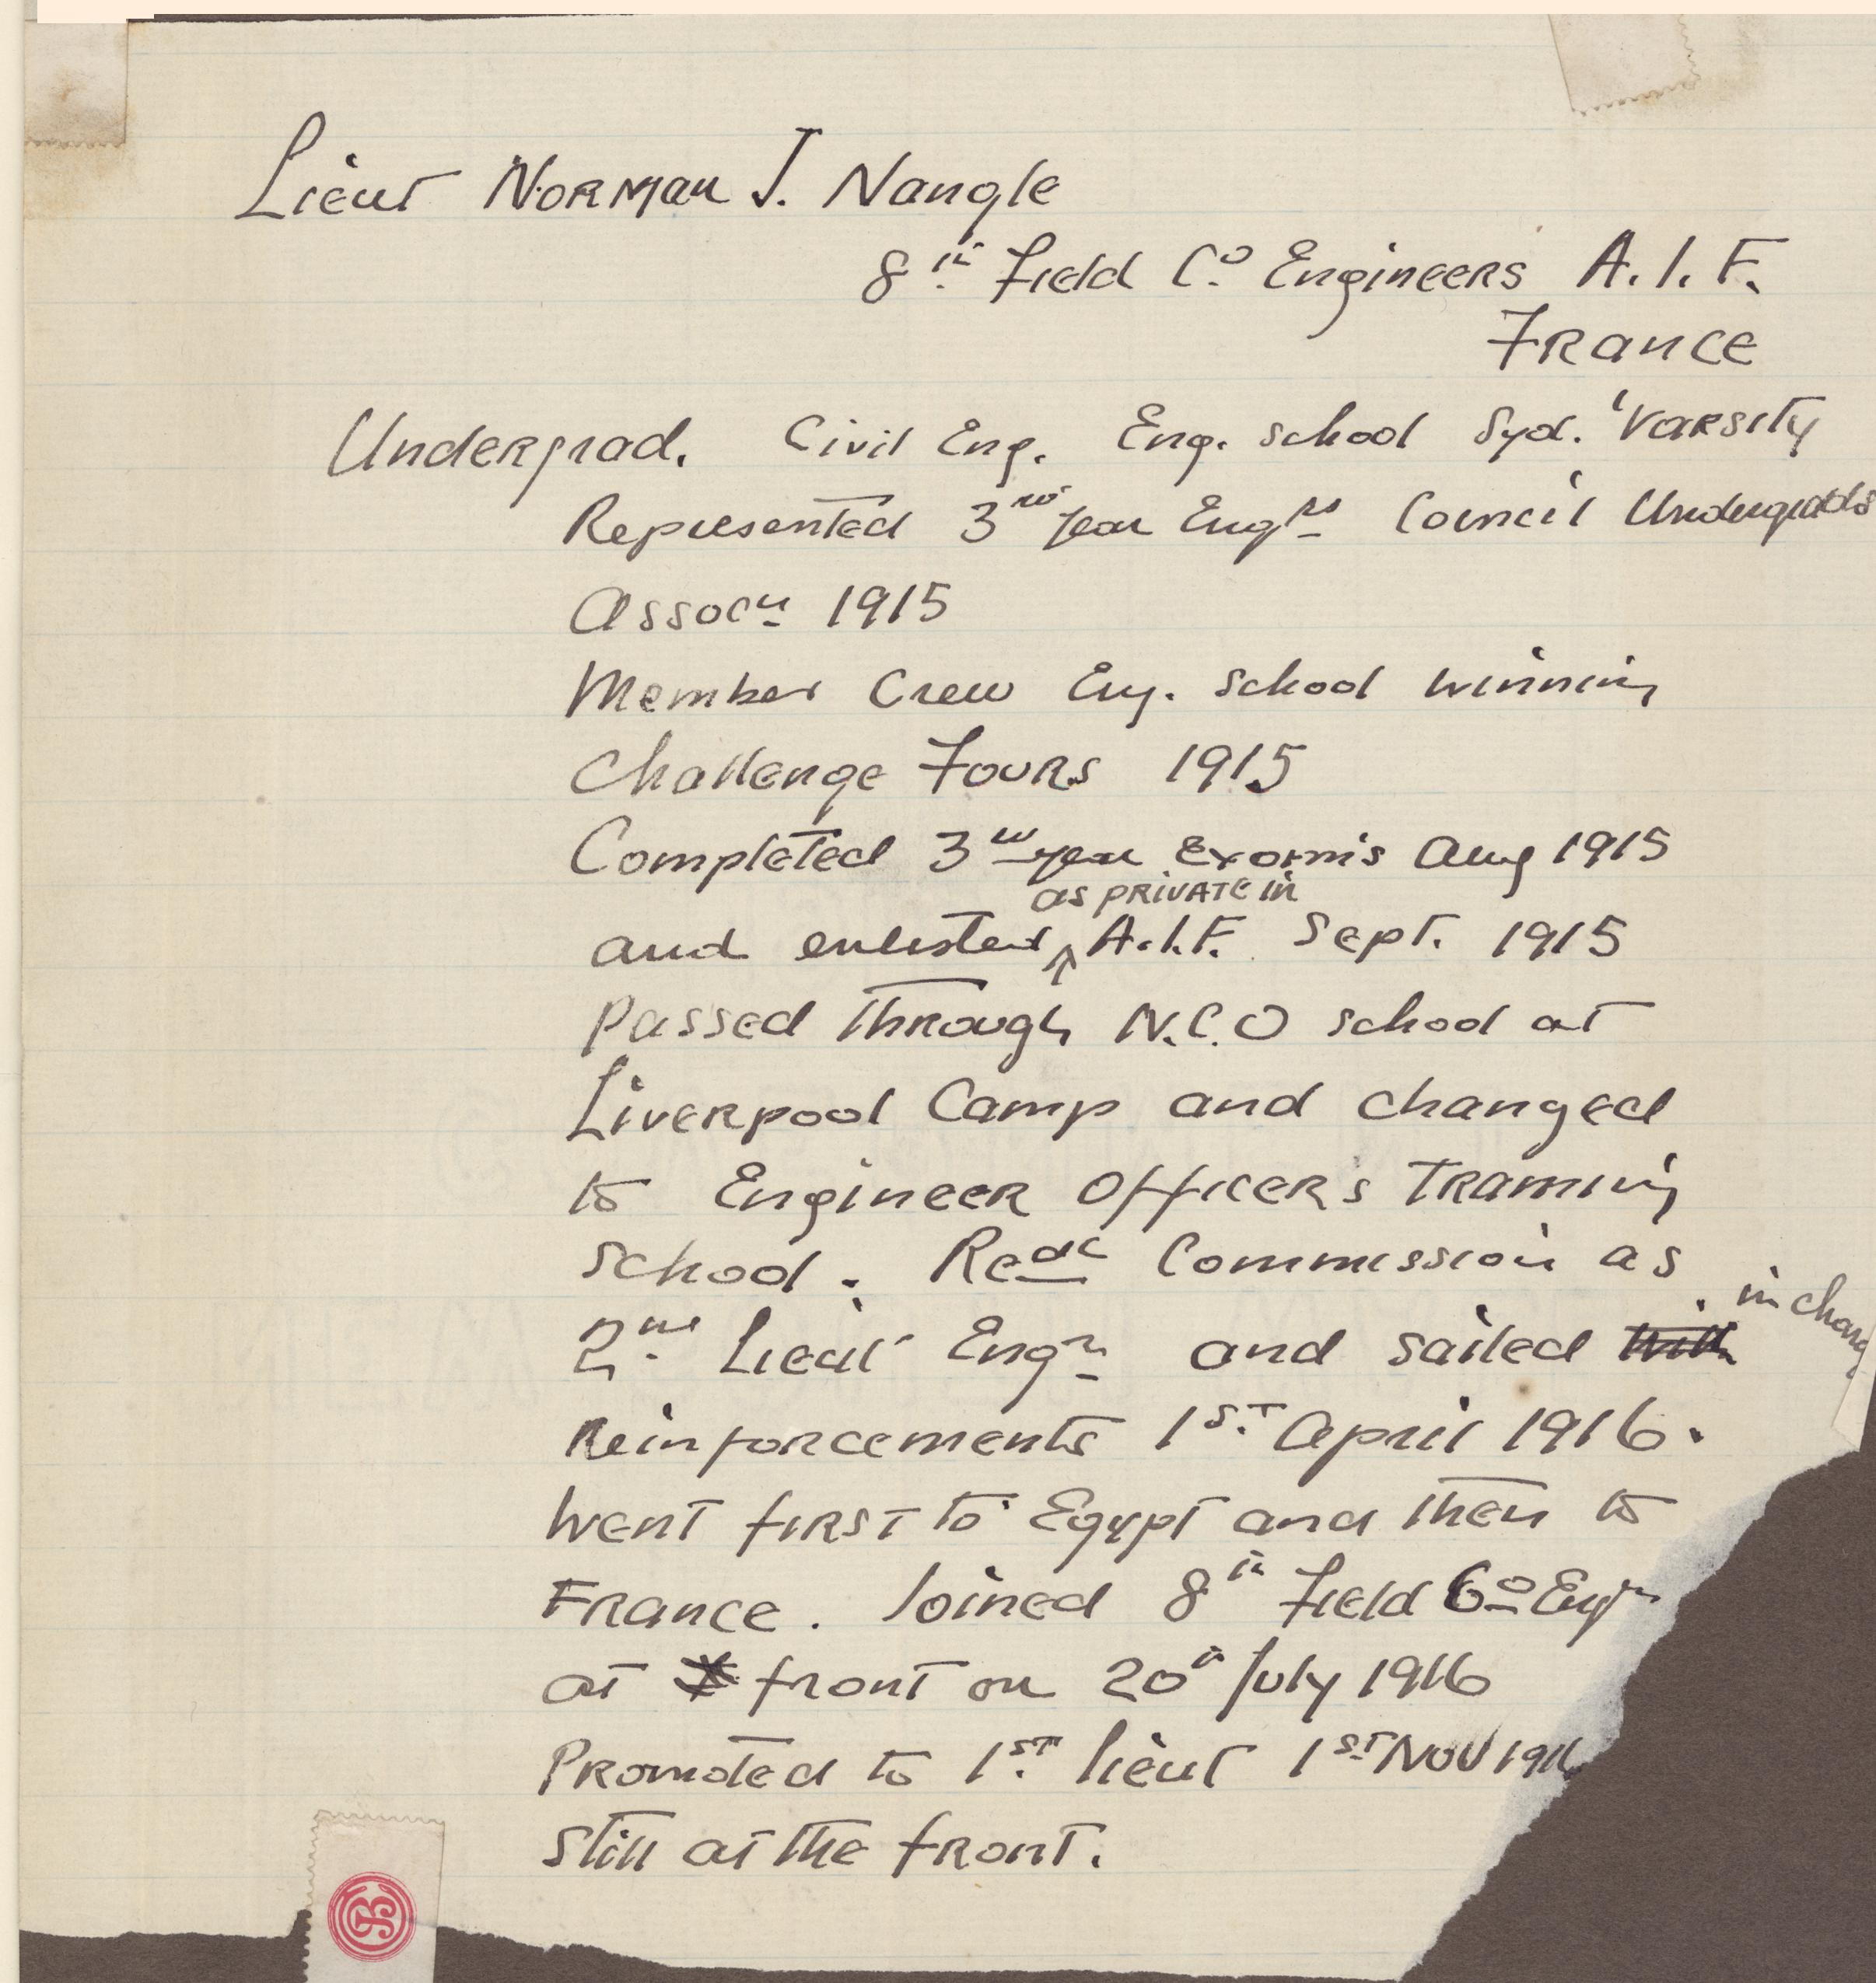 Lieut Norman J. Nangle
8th Field Co Engineers A.I.F.
France
Undergrad. Civil Eng. Eng. School Syd. 'Varsity
Represented 3rd year Engrs Council Undergrads
Assocn 1915
Member Crew Eng. School winning
Challenge Fours 1915
Completed 3rd year Exams Aug 1915
as private in
and enlisted ^ A.I.F. Sept. 1915
Passed through N.C.O school at
Liverpool Camp and changed
to Engineer Officer's Training
School. Recd Commission as
in charg
2nd Lieut Engrs and sailed with
Reinforcements 1st April 1916.
Went first to Egypt and then to
France. Joined 8th Field Co Engrs
at front on 20th July 1916
Promoted to 1st Lieut 1st Nov 1916
Still at the front.